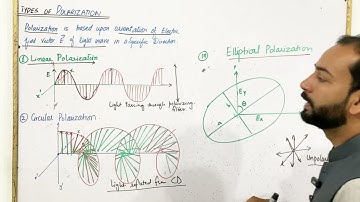 TYPES OF POLARIZATION
Polarization is based upon orientation of Electric
field vector E of light wave in a specific direction.
① Linear Polarization
E
x'
Light Passing through polarizing
filter.
② Circular Polarization
x'
y'
Light reflected from CD
Elliptical Polarization
Ey
θ
Ex
Unpola